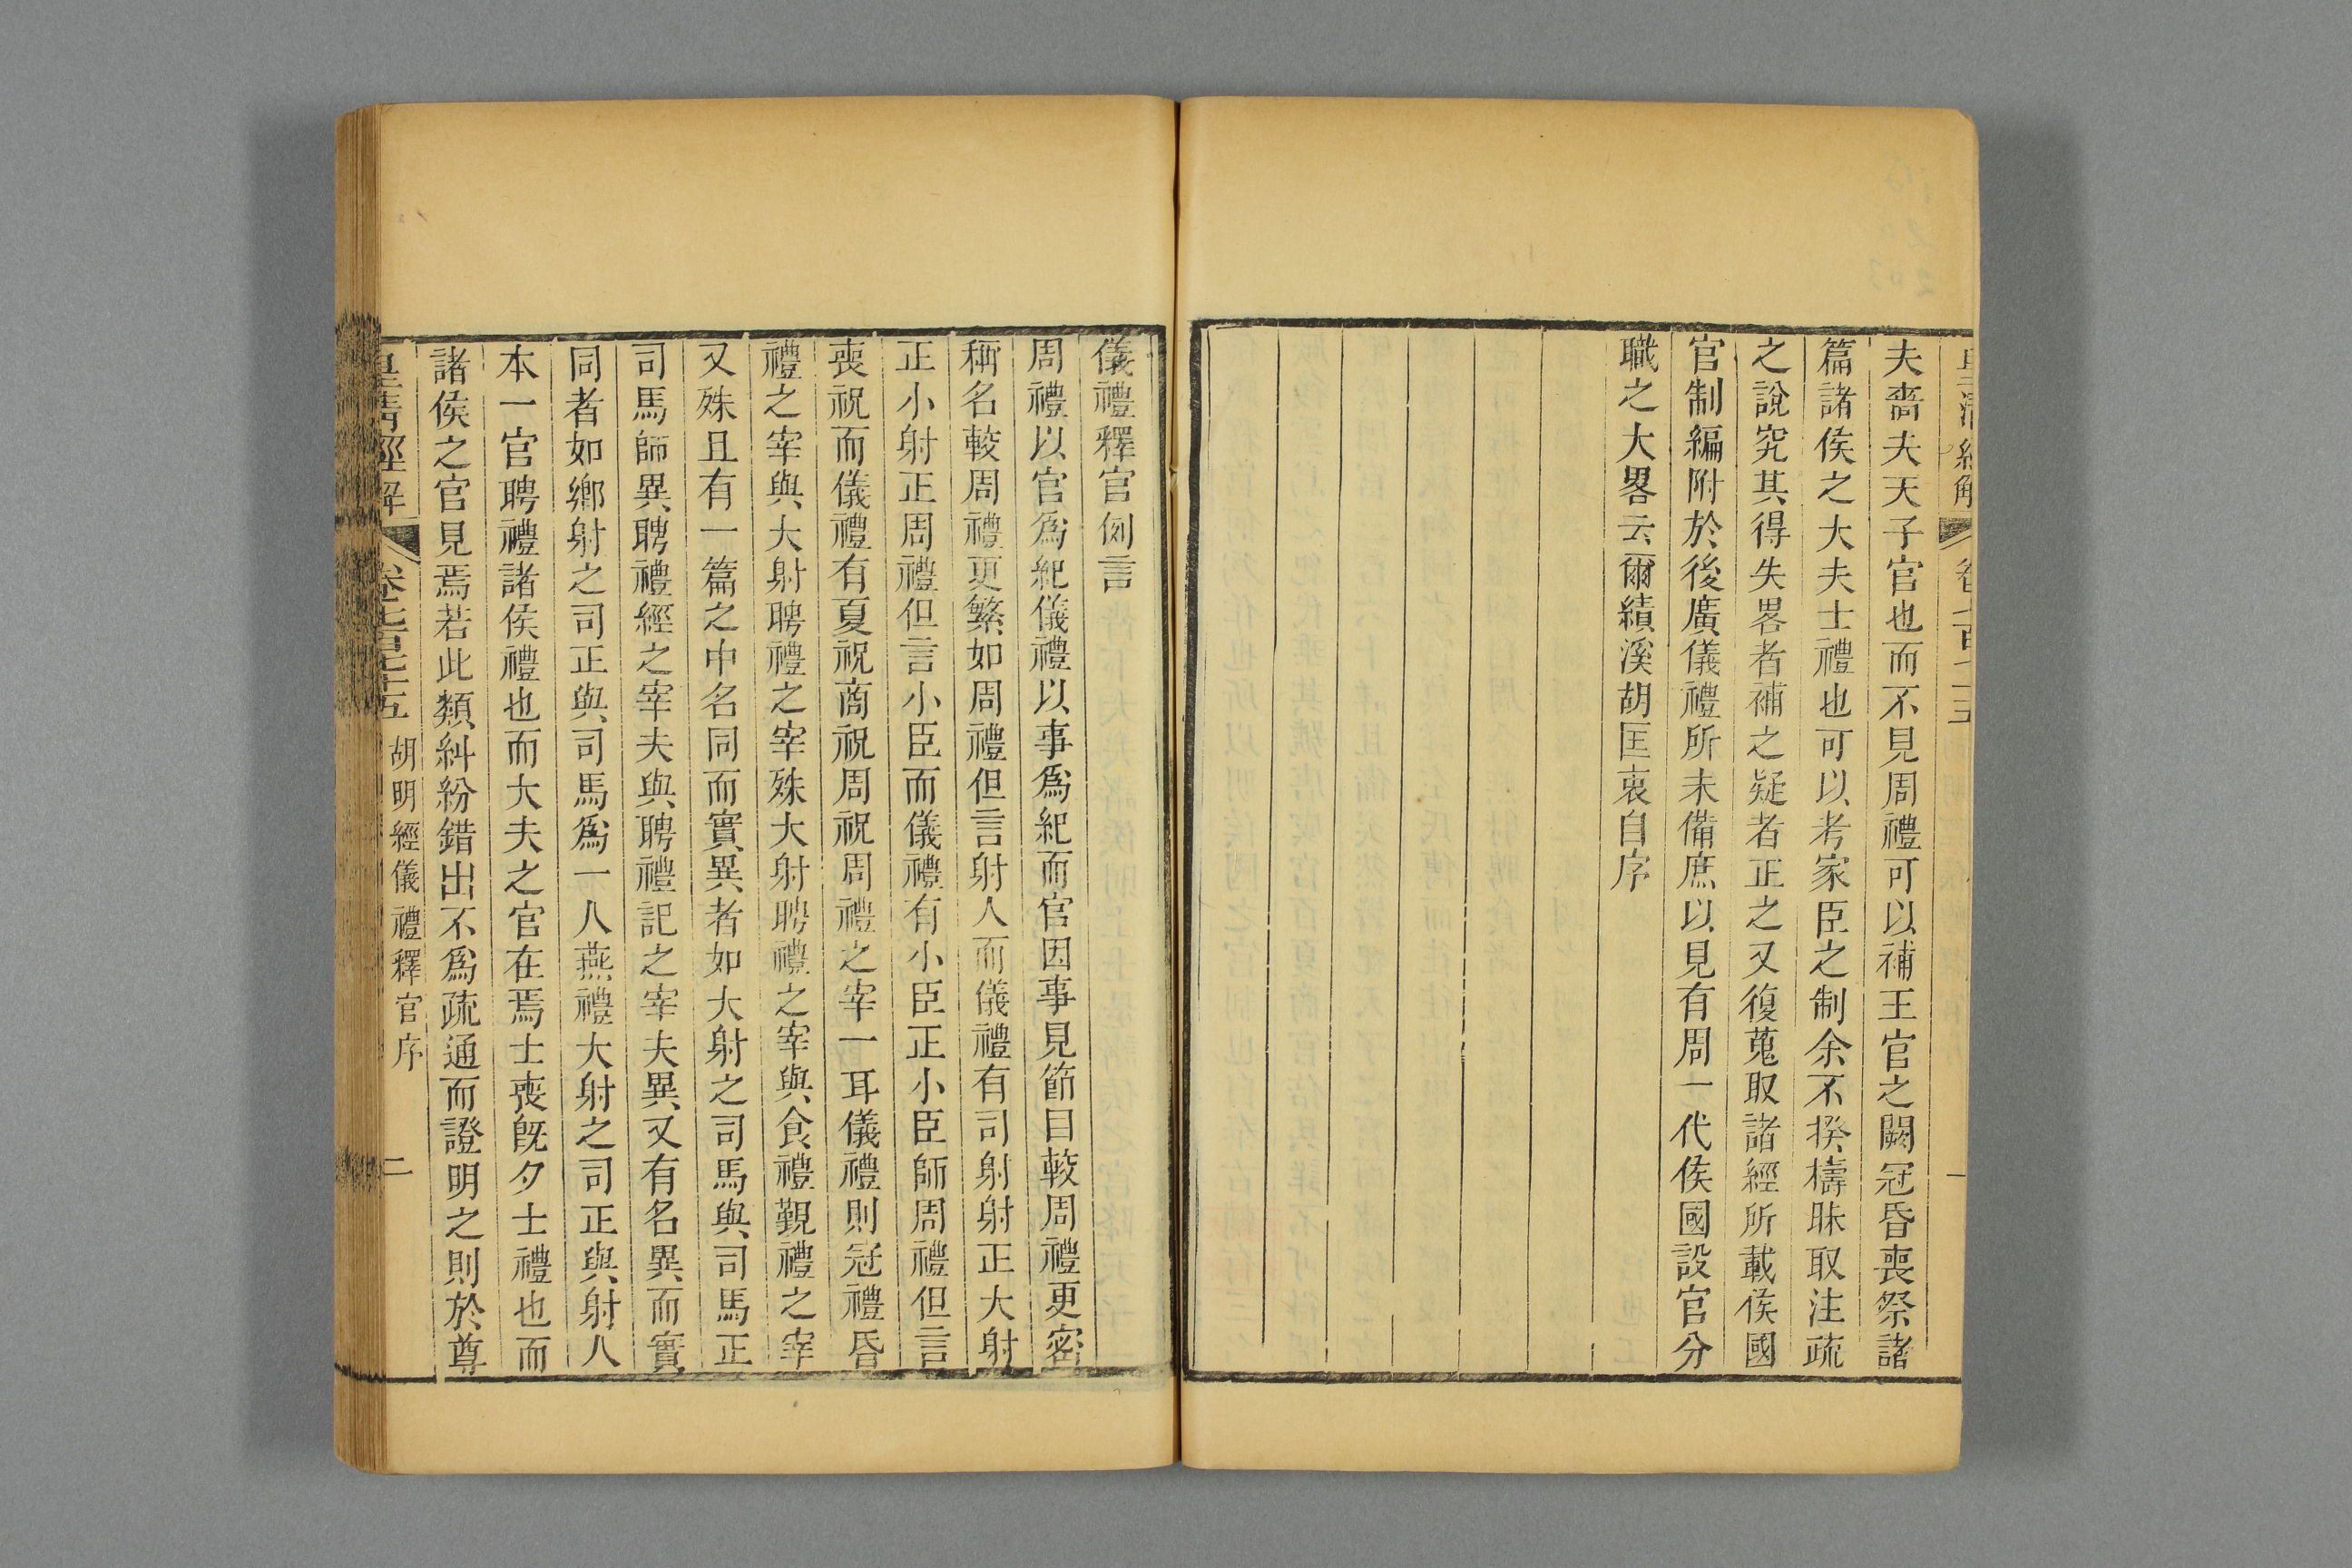 夫嗇夫天子官也而不見周禮可以補王官之闕冠昏喪祭諸
篇諸侯之大夫士禮也可以考家臣之制余不揆檮昧取注疏
之說究其得失畧者補之疑者正之又復蒐取諸經所載侯國
官制編附於後廣儀禮所未備庶以見有周一代侯國設官分
職之大畧云爾績溪胡匡衷自序
儀禮釋官例言
周禮以官爲紀儀禮以事爲紀而官因事見節目較周禮更密
稱名較周禮更繁如周禮但言射人而儀禮有司射射正大射
正小射正周禮但言小臣而儀禮有小臣正小臣師周禮但言
喪祝而儀禮有夏祝商祝周祝周禮之宰一耳儀禮則冠禮昏
禮之宰與大射聘禮之宰殊大射聘禮之宰與食禮覲禮之宰
又殊且有一篇之中名同而實異者如大射之司馬與司馬正
司馬師異聘禮經之宰夫與聘禮記之宰夫異又有名異而實
同者如鄉射之司正與司馬爲一人燕禮大射之司正與射人
本一官聘禮諸侯禮也而大夫之官在焉士喪旣夕士禮也而
諸侯之官見焉若此類糾紛錯出不爲疏通而證明之則於尊
皇清經解 卷七百七十五 胡明經儀禮釋官序 二